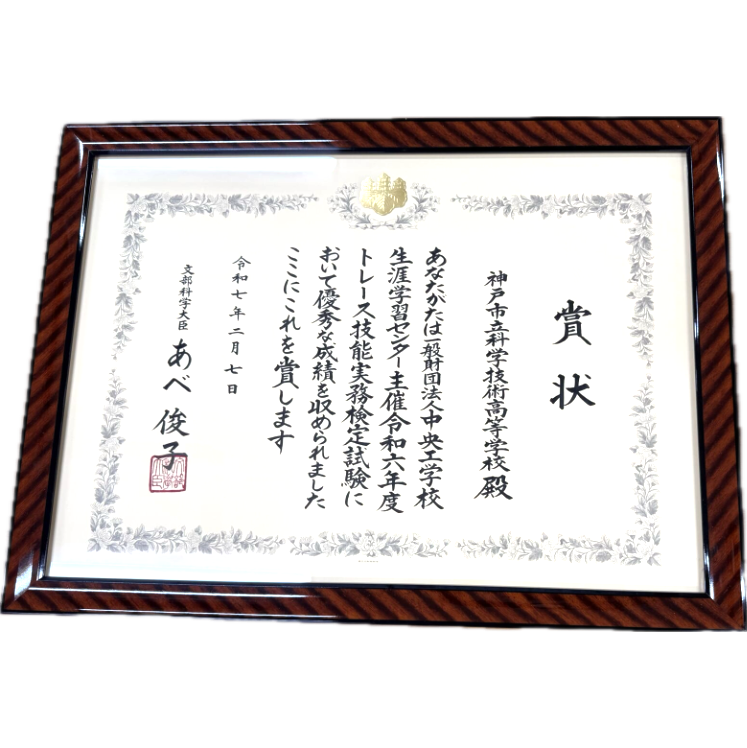 賞状
神戸市立科学技術高等学校殿
あなたがたは一般財団法人中央工学校
生涯学習センター主催令和六年度
トレース技能実務検定試験に
おいて優秀な成績を収められました
ここにこれを賞します
令和七年二月七日
文部科学大臣 あべ俊子